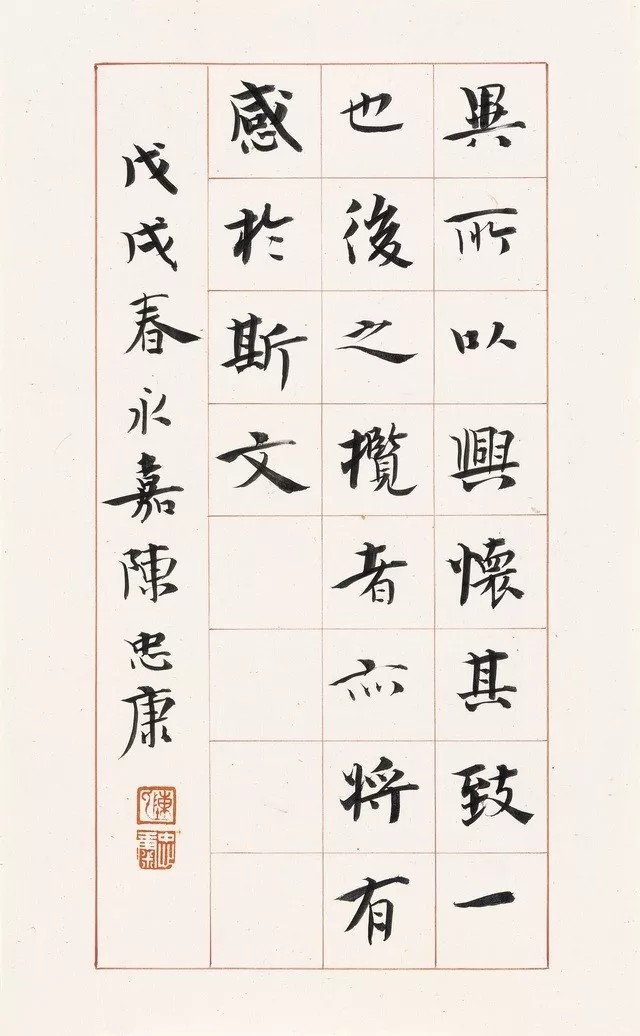 異所以興懷其致一
也後之攬者亦將有
感於斯文
戊戌春永嘉陳忠康
陳
忠康